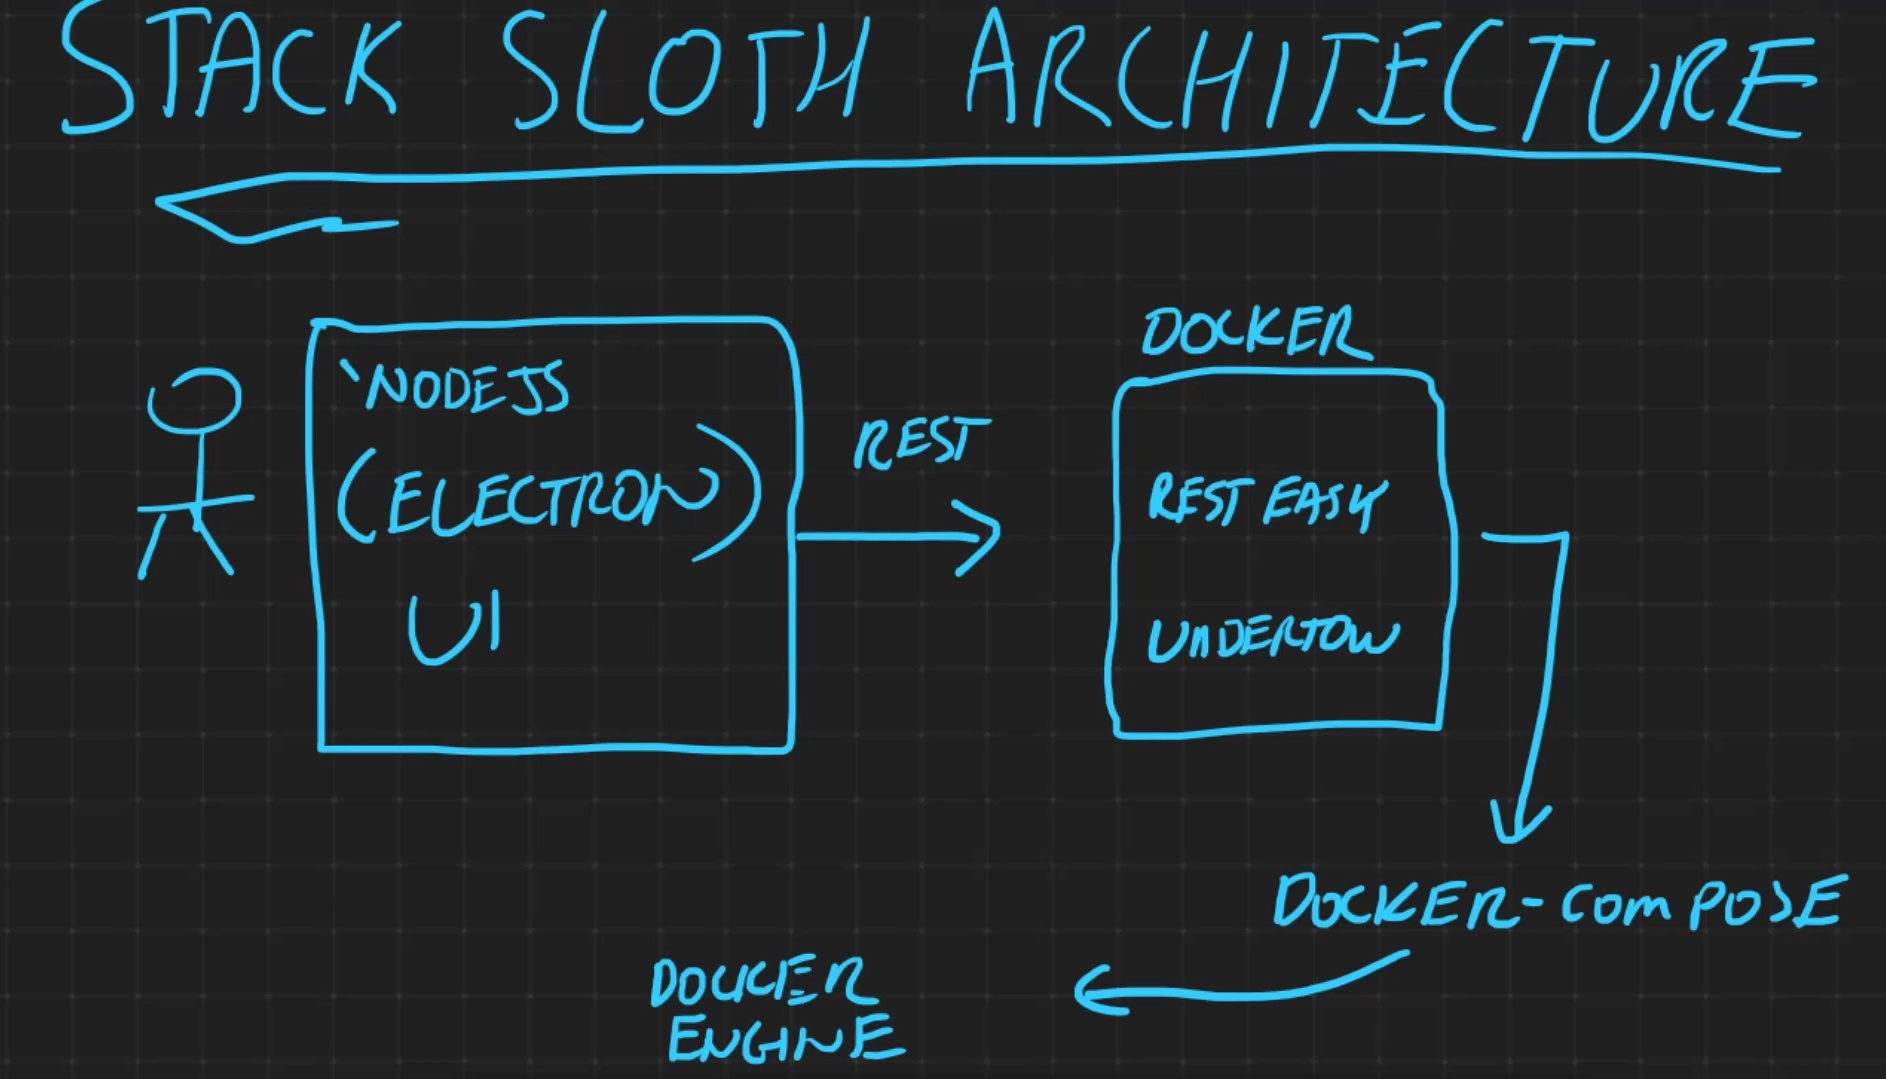 STACK SLOTH ARCHITECTURE
NODEJS
(ELECTRON)
UI
REST
DOCKER
REST EASY
UNDERTOW
DOCKER-COMPOSE
DOCKER
ENGINE